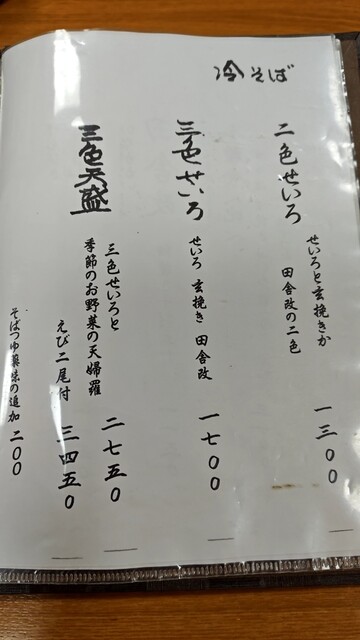 冷そば
二色せいろ
せいろと玄挽きか
田舎改の二色
一三〇〇
三色せいろ
せいろ 玄挽き 田舎改
一七〇〇
三色天盛
三色せいろと
季節のお野菜の天婦羅
二七五〇
えび二尾付
三四五〇
そばつゆ薬味の追加 二〇〇